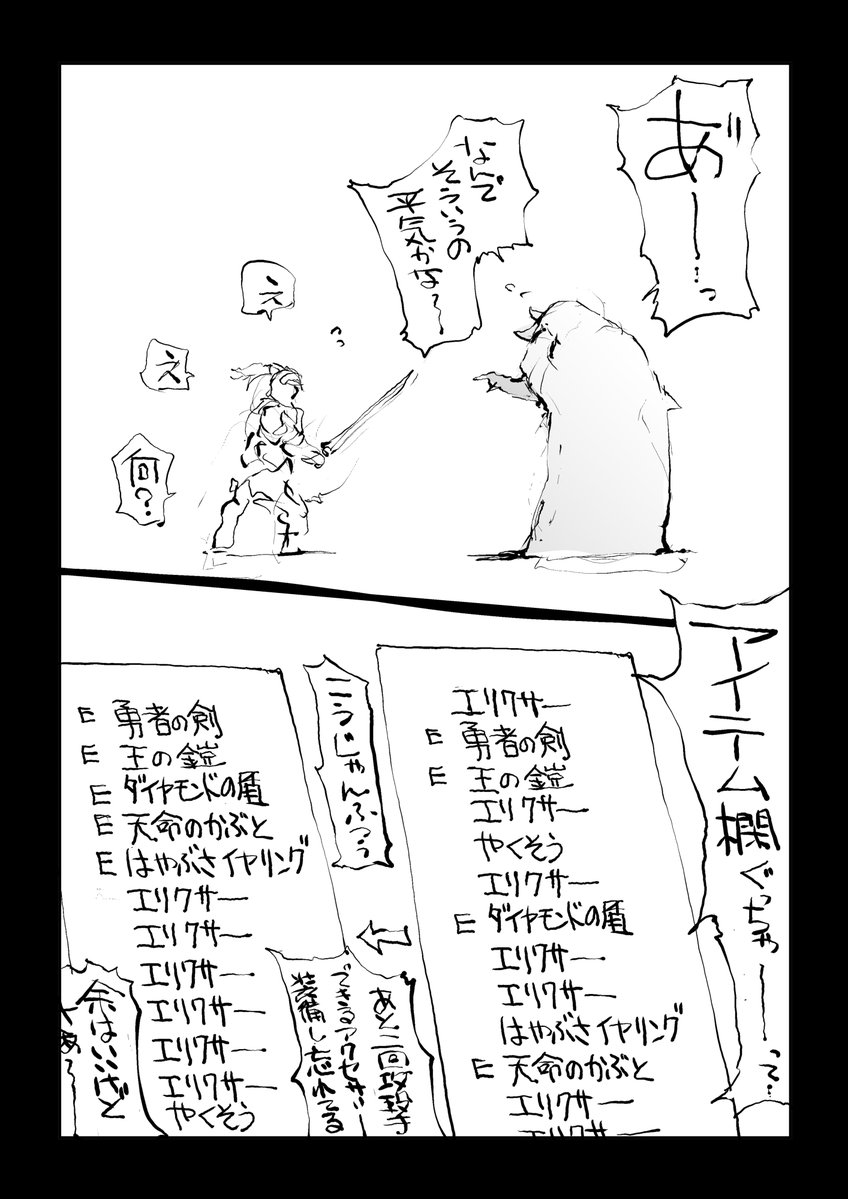 あ゛ー…っ
なんで
そういうの
平気かな〜
え
え
何?
アイテム欄
ぐっちゃーーって…
エリクサー
E 勇者の剣
E 王の鎧
エリクサー
やくそう
エリクサー
E ダイヤモンドの盾
エリクサー
エリクサー
はやぶさイヤリング
E 天命のかぶと
エリクサー
エリクサー
あと二回攻撃
できるアクセサリー
装備し忘れてる
こうじゃんふつう
E 勇者の剣
E 王の鎧
E ダイヤモンドの盾
E 天命のかぶと
E はやぶさイヤリング
エリクサー
エリクサー
エリクサー
エリクサー
エリクサー
エリクサー
やくそう
余はいいけど